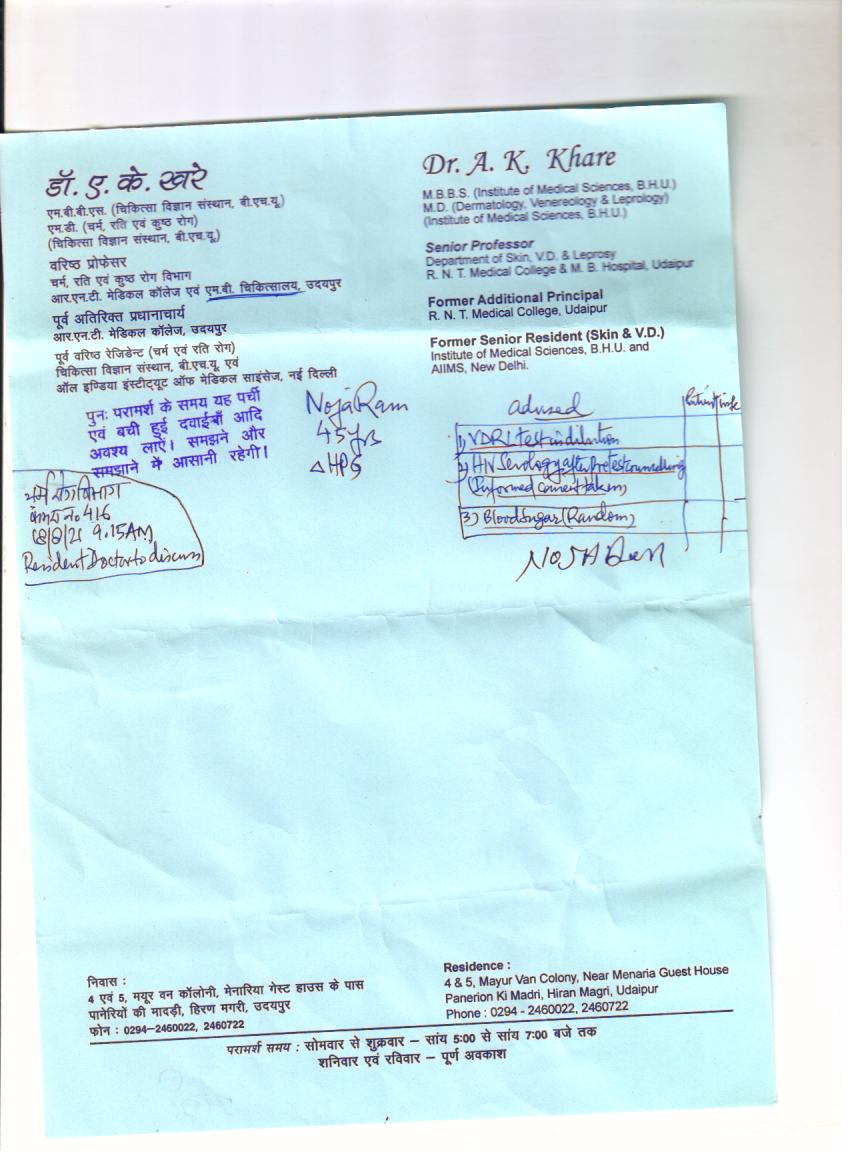 डॉ. ए. के. खरे
एम.बी.बी.एस. (चिकित्सा विज्ञान संस्थान, बी.एच.यू.)
एम.डी. (चर्म, रति एवं कुष्ठ रोग)
(चिकित्सा विज्ञान संस्थान, बी.एच.यू.)
वरिष्ठ प्रोफेसर
चर्म, रति एवं कुष्ठ रोग विभाग
आर.एन.टी. मेडिकल कॉलेज एवं एम.बी. चिकित्सालय, उदयपुर
पूर्व अतिरिक्त प्रधानाचार्य
आर.एन.टी. मेडिकल कॉलेज, उदयपुर
पूर्व वरिष्ठ रेजिडेन्ट (चर्म एवं रति रोग)
चिकित्सा विज्ञान संस्थान, बी.एच.यू. एवं
ऑल इण्डिया इंस्टीट्यूट ऑफ मेडिकल साइंसेज, नई दिल्ली
Dr. A. K. Khare
M.B.B.S. (Institute of Medical Sciences, B.H.U.)
M.D. (Dermatology, Venereology & Leprology)
(Institute of Medical Sciences, B.H.U.)
Senior Professor
Department of Skin, V.D. & Leprosy
R. N. T. Medical College & M. B. Hospital, Udaipur
Former Additional Principal
R. N. T. Medical College, Udaipur
Former Senior Resident (Skin & V.D.)
Institute of Medical Sciences, B.H.U. and
AIIMS, New Delhi.
पुनः परामर्श के समय यह पर्ची
एवं बची हुई दवाईयाँ आदि
अवश्य लाऐं। समझने और
समझाने में आसानी रहेगी।
NojaRam
45yrs
△ HPG
चर्म रोग विभाग
No 416
9.15AM
Resident Doctor to discuss
advised
1) VDRL test in dilution
2) HIV Serology after pretest counselling
(Informed consent taken)
3) Blood Sugar (Random)
निवास :
4 एवं 5, मयूर वन कॉलोनी, मेनारिया गेस्ट हाउस के पास
पानेरियों की मादड़ी, हिरण मगरी, उदयपुर
फोन : 0294-2460022, 2460722
Residence :
4 & 5, Mayur Van Colony, Near Menaria Guest House
Panerion Ki Madri, Hiran Magri, Udaipur
Phone : 0294 - 2460022, 2460722
परामर्श समय : सोमवार से शुक्रवार – सांय 5:00 से सांय 7:00 बजे तक
शनिवार एवं रविवार – पूर्ण अवकाश